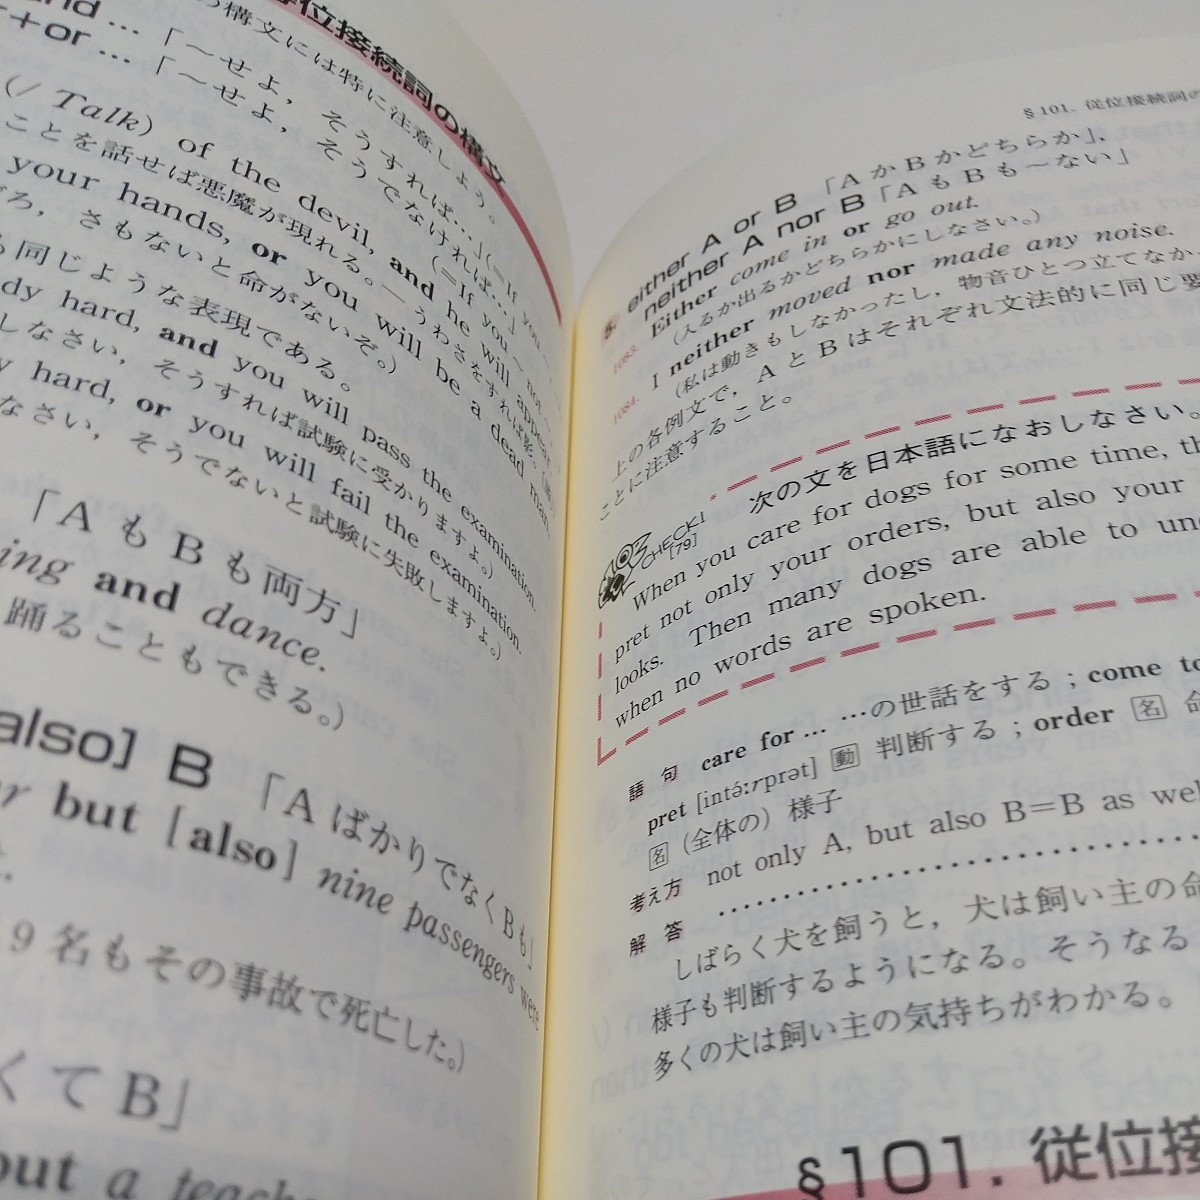 位接続詞の構文
の構文には特に注意しよう。
and …「～せよ，そうすれば…」(=If you ～,
+or …「～せよ，そうでなければ…」
(=If you ～ not ～,
(/ Talk) of the devil, and he will appear.
ことを話せば悪魔が現れる。—うわさをすれば影。
your hands, or you will be a dead man.
ろ，さもないと命がないぞ。)
も同じような表現である。
dy hard, and you will pass the examination.
しなさい，そうすれば試験に受かりますよ。)
y hard, or you will fail the examination.
なさい，そうでないと試験に失敗しますよ。)
「AもBも両方」
ing and dance.
踊ることもできる。)
also] B 「AばかりでなくBも」
but [also] nine passengers were
9名もその事故で死亡した。)
くてB」
out a teache
§101. 従位接続詞の
5. either A or B 「AかBかどちらか」，
neither A nor B 「AもBも～ない」
1083. Either come in or go out.
(入るか出るかどちらかにしなさい。)
1084. I neither moved nor made any noise.
(私は動きもしなかったし，物音ひとつ立てなか
上の各例文で，AとBはそれぞれ文法的に同じ要
ことに注意すること。
CHECK!
[79]
次の文を日本語になおしなさい。
When you care for dogs for some time, th
pret not only your orders, but also your
looks. Then many dogs are able to un
when no words are spoken.
語句 care for … …の世話をする；come to
pret [intə́ːrprət] 動 判断する；order 名 命
名 (全体の) 様子
考え方 not only A, but also B=B as wel
解答
しばらく犬を飼うと，犬は飼い主の命
様子も判断するようになる。そうなる
多くの犬は飼い主の気持ちがわかる。
§101. 従位接